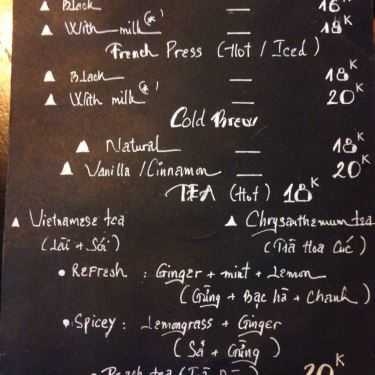 ▲ Black — 16K
▲ With milk (*) — 18K
French Press (Hot / Iced)
▲ Black — 18K
▲ With milk (*) — 20K
Cold Brew
▲ Natural — 18K
▲ Vanilla / Cinnamon — 20K
TEA (Hot) 18K
▲ Vietnamese tea ▲ Chrysanthemum tea
(Lài + Sói) (Trà Hoa Cúc)
• Refresh : Ginger + mint + Lemon
(Gừng + Bạc hà + Chanh)
• Spicey : Lemongrass + Ginger
(Sả + Gừng)
• Peach tea ( 20K